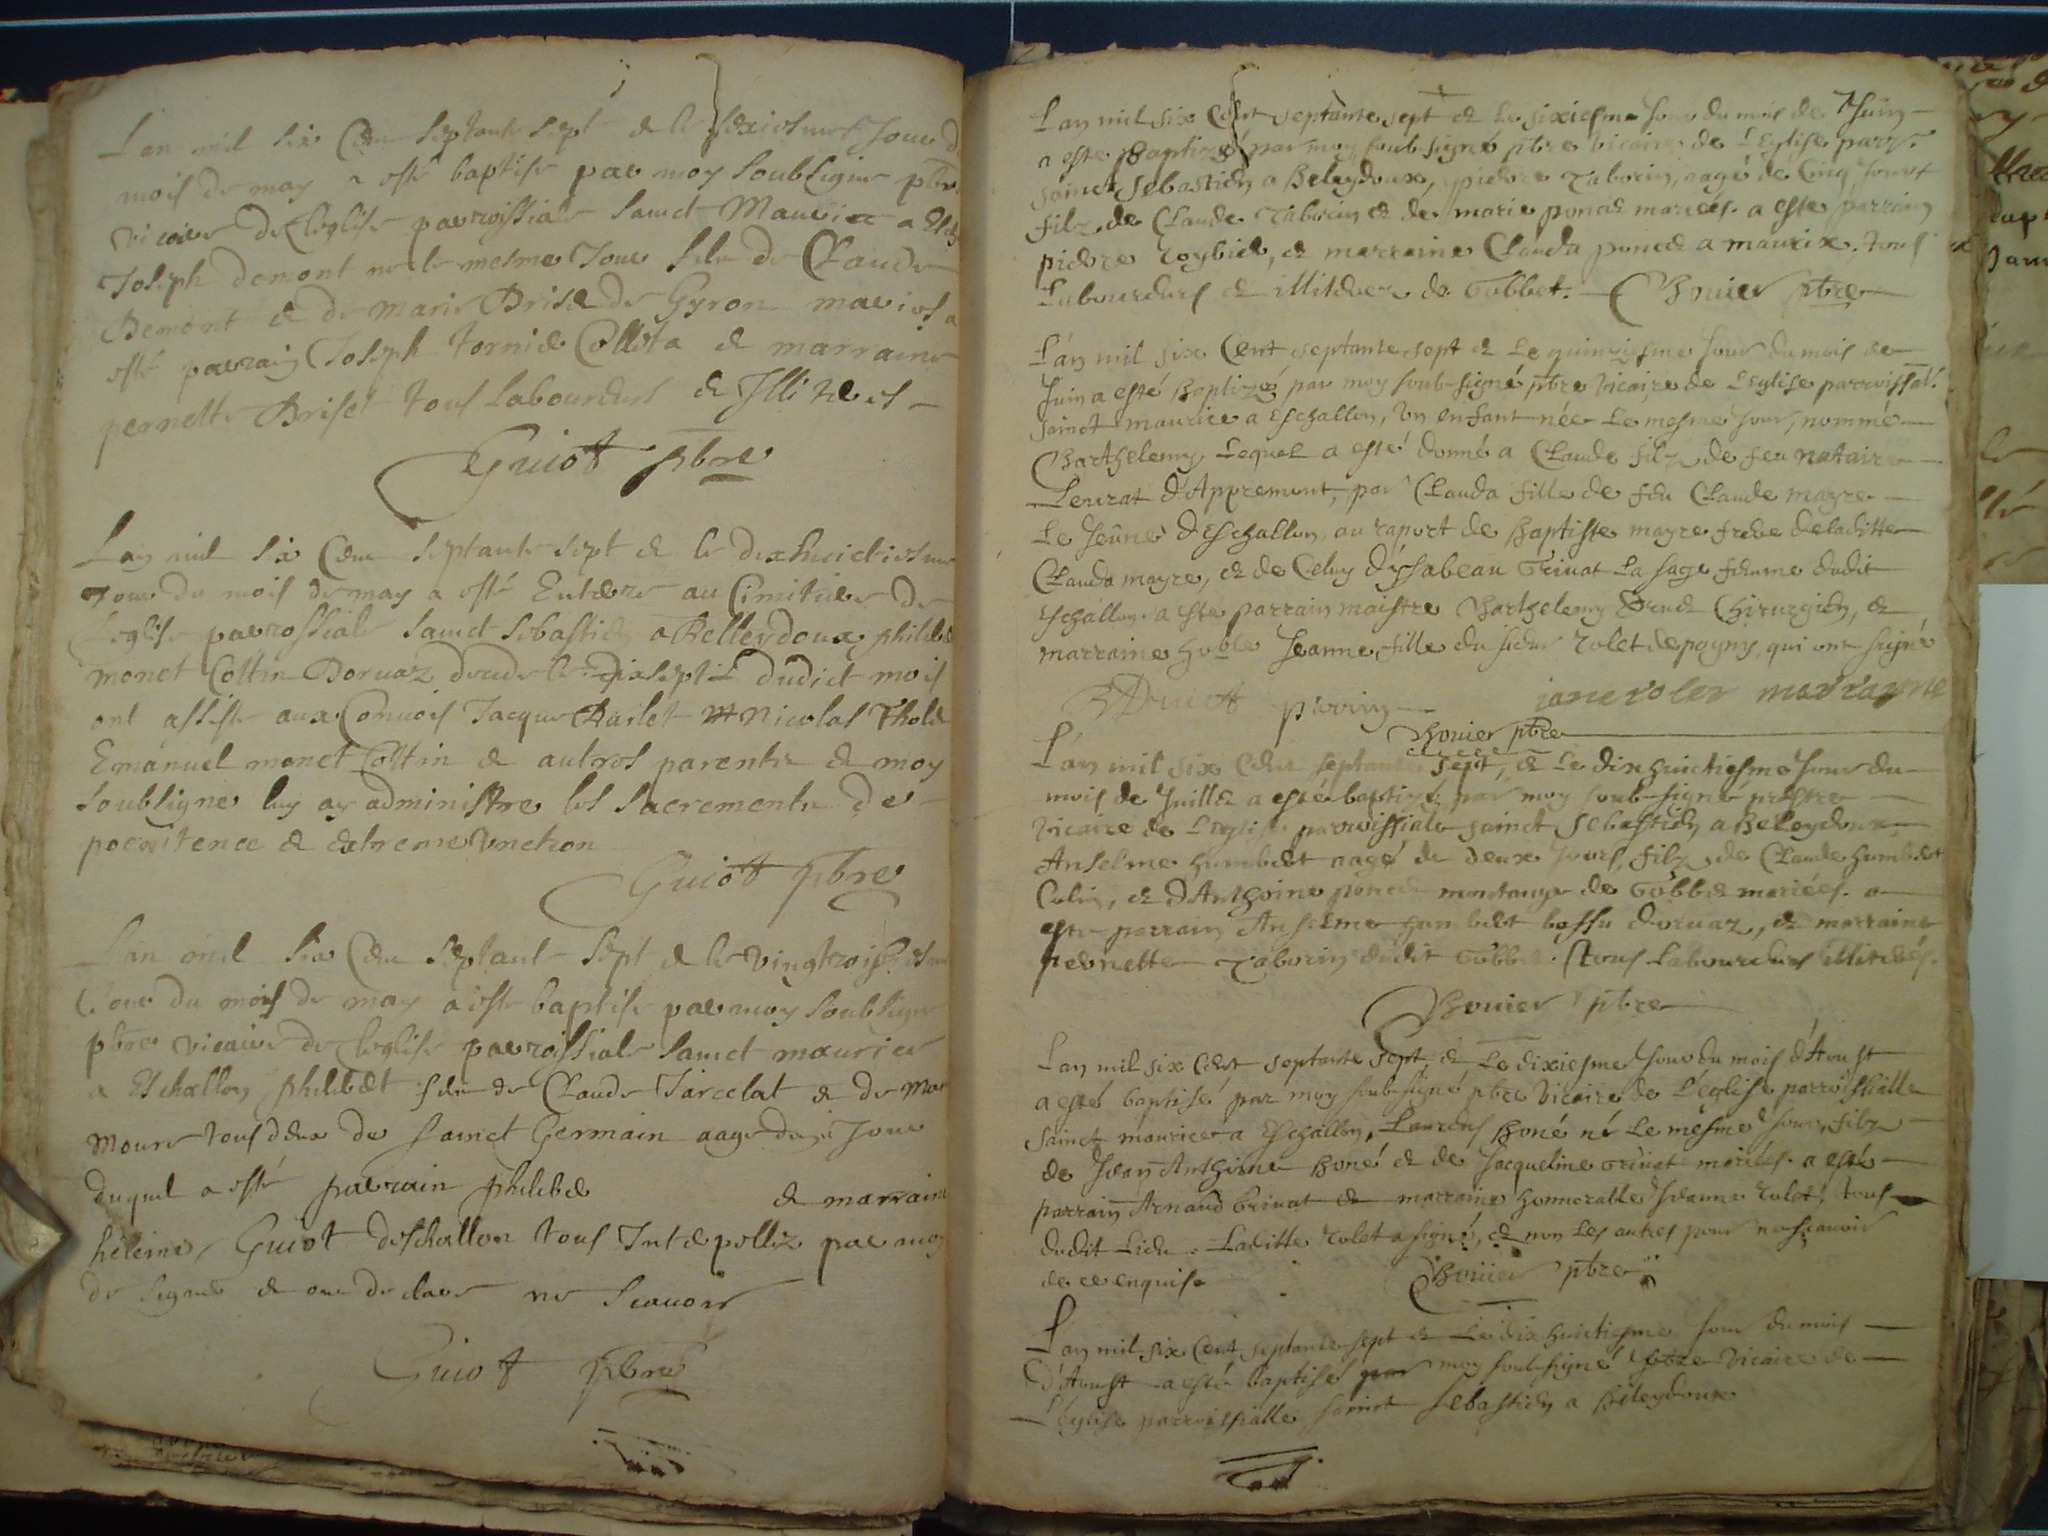 Lan mil six Cens septante sept & le seziesme Jour d
mois de may a esté baptisé par moy soubsigne pbre
vicaire de leglise parroissiale sainct Maurice a Esch
Joseph demont ne le mesme Jour filz de Claude
Demont & de Marie Brised de Gyron mariés a
esté parrain Joseph tornié Colleta & marraine
pernette Briset tous Laboureurs & Illiterés
Guiott pbre
Lan mil six Cens septante sept & le dixhuictiesme
Jour du mois de may a esté Enterré au Cimitiere de
Leglise parrossiale sainct sebastien a Belleydoux philib
monet Cottin Dorvaz decede le dixseptie dudict mois
ont assisté aux Convois Jacque Barlet Nicolas
Emanuel monet Cottin & autres parents & moy
soubsigne luy ay administre les sacrements de
poenitence & extreme Unction
Guiott pbre
Lan mil six Cens septante sept & le vingtroisiesme
Jour du mois de may a esté baptisé par moy soubsigne
pbre vicaire de leglise parroissiale sainct maurice
a Eschallon philibert filz de Claude Jarcelat & de Mar
Moure tous deux de sainct Germain aagé Jour
duquel a esté parrain philibe & marraine
heleine Guiot deschallon tous Interpellez par moy
de signer & ont declare ne scavoir
Guiott pbre
Lan mil six Cent septante sept & le sixiesme Jour du mois de Juin
a esté Baptizé par moy soub-signé pbre vicaire de L'Eglise parr.
sainct Sebastien a Beleydoux, pierre Taborin, aagé de Cinq Jours
filz de Claude Taborin & de marie poncet mariés. a esté parrain
pierre, & marraine Clauda poncet a maurix. tous
Laboureurs & illiterez de Gobbet. Bouier pbre
L'an mil six Cent septante sept & Le quinziesme Jour du mois de
Juin a esté Baptizé par moy soub-signé pbre vicaire de L'Eglise parroissal.
sainct maurice a Eschallon, Un enfant née Le mesme Jour, nommé
Barthelemy Lequel a esté donné a Claude filz de feu notaire
Levrat d'Appremont, par Clauda fille de feu Claude mayre
Le Jeune d'Eschallon, au raport de Baptiste mayre frere deladitte
Clauda mayre, & de Celuy d'ysabeau Grivat La sage femme dudit
Eschallon. a esté parrain maistre Barthelemy Chirurgien, &
marraine hoble Jeanne, fille du sieur Rolet depogny, qui ont signé
parrin jane rolet marrayne
Bouier pbre
L'an mil six Cent septante sept, & Le dixhuictiesme Jour du
mois de Juillet a esté baptizé par moy soub-signé prestre
Vicaire de L'eglise parroissiale sainct Sebastien a Beleydoux,
Anselme humbert aagé de deux Jours, filz de Claude humbert
Colin, & d'Anthoine poncet montange de Gobbet mariés. a
esté parrain Anselme humbert bossu dorvaz, & marraine
pernette Taborin dudit Gobbet. tous Laboureurs illiterés.
Bouier pbre
Lan mil six Cent septante sept, & Le dixiesme Jour du mois d'Aoust
a esté baptisé par moy soub-signé pbre Vicaire de L'église parroissialle
sainct maurice a Eschallon, Laurens Boné né Le mésme Jour, filz
de Jean Anthoine Boné & de Jacqueline Grivat mariés. a esté
parrain Arnaud Grivat & marraine honnorable Jeanne Rolet, tous
dudit Lieu. Laditte Rolet a signé, & non Les autres pour ne scavoir
de ce enquis. Bouier pbre
L'an mil six Cent septante sept & Le dix huictiesme Jour du mois
D'Aoust a esté baptisé par moy soub-signé pbre Vicaire de
L'église parroissialle sainct Sebastien a Beleydoux